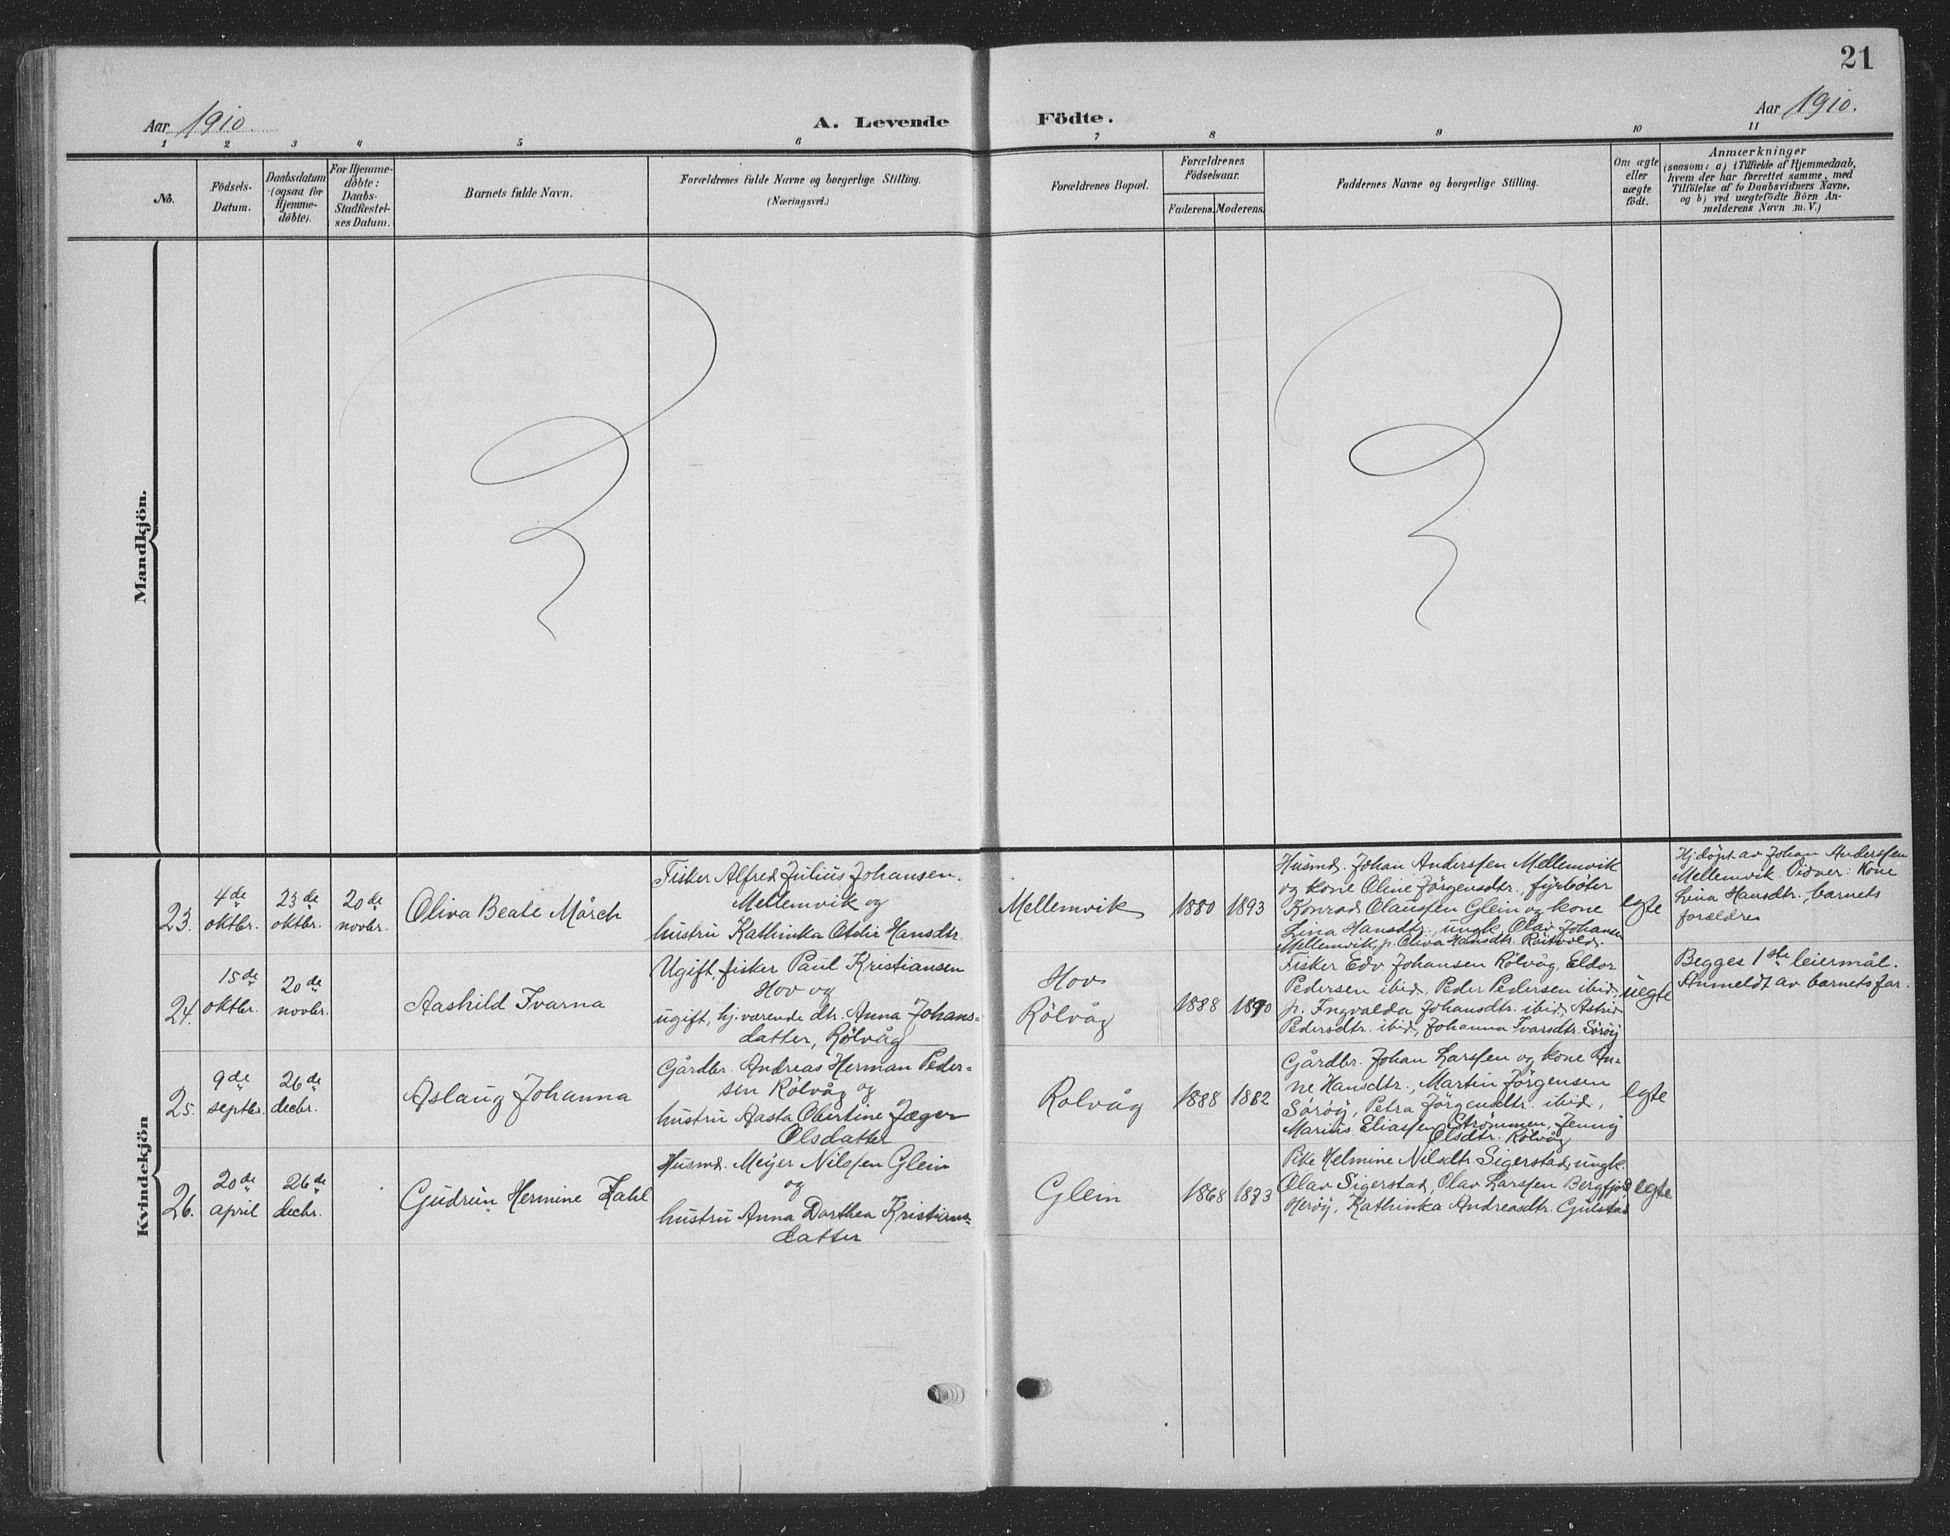 21
Aar 1910.
A. Levende Födte.
Aar 1910.
1 2 3 4 5 6 7 8 9 10 11
No.
Födsels-
Datum.
Daabsdatum
(ogsaa for
Hjemme-
döbte).
For Hjemme-
döbte:
Daabs-
Stadfæstel-
ses Datum.
Barnets fulde Navn.
Forældrenes fulde Navne og borgerlige Stilling.
(Næringsvei.)
Forældrenes Bopæl.
Forældrenes
Födselsaar.
Faderens. Moderens.
Faddernes Navne og borgerlige Stilling.
Om ægte
eller
uægte
födt.
Anmærkninger
(saasom: a) i Tilfælde af Hjemmedaab,
hvem der har forrettet samme, med
Tilföielse af to Daabsvidners Navne.
og b) ved uægtefödte Börn An-
melderens Navn m. V.)
Mandkjön.
Kvindekjön
23.
4de
oktbr.
23de
oktbr.
20de
novbr.
Oliva Beate Mörch
Fisker Alfred Julius Johansen.
Mellemvik og
hustru Kathinka Otelie Hansdtr.
Mellemvik
1880 1893
Husmd. Johan Anderssen Mellemvik
og kone Oline Jörgensdtr., fyrböter
Konrad Olaussen Glein og kone
Lina Hansdtr., ungk. Olav Johansen
Mellemvik, p. Oliva Hansdtr.
egte
Hj.döpt av Johan Anderssen
Mellemvik. Vidner: Kone
Lina Hansdtr., barnets
foreldre
24.
15de
oktbr.
20de
novbr.
Aashild Ivarna
Ugift fisker Paul Kristiansen
Hov og
ugift, hj.værende dtr. Anna Johans-
datter, Rölvåg
Hov
Rölvåg
1888 1890
Fisker Edv Johansen Rölvåg, Eldor
Pedersen ibid, Peder Pedersen ibid,
p. Ingvalda Johansdtr. ibid, Astrid
Pedersdtr. ibid, Johanna Ivarsdtr. Söröy
uegte
Begges 1ste leiermål.
Anmeldt av barnets far.
25.
9de
septbr.
26de
decbr.
Aslaug Johanna
Gårdbr. Andreas Herman Peder-
sen Rölvåg og
hustru Aasta Obertine Jæger
Olsdatter
Rolvåg
1888 1882
Gårdbr. Johan Larssen og kone An-
ne Hansdtr., Martin Jörgensen
Söröy, Petra Jörgensdtr. ibid.,
Marius Eliassen Strömmen, Jenny
Olsdtr. Rölvåg
egte
26.
20de
april
26de
decbr.
Gudrun Hermine Zahl
Husmd. Meyer Nilssen Glein
og
hustru Anna Dorthea Kristians-
datter
Glein
1868 1873
Pike Helmine Nilsdtr. Sigerstad, ungk.
Olav Sigerstad, Olav Larssen Bergfjord
Heröy, Kathinka Andreasdtr. Gulstad
egte